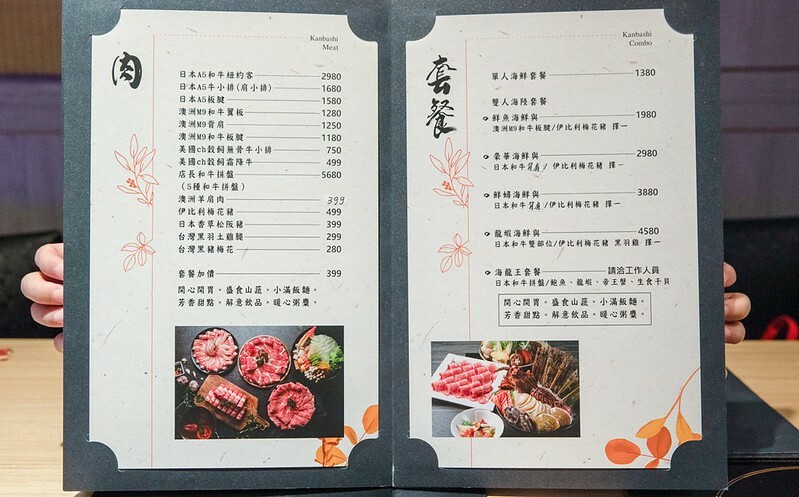 Kanbashi
Meat
肉
日本A5和牛紐約客 2980
日本A5牛小排(肩小排) 1680
日本A5板腱 1580
澳洲M9和牛翼板 1280
澳洲M9背肩 1250
澳洲M9和牛板腱 1180
美國ch穀飼無骨牛小排 750
美國ch穀飼霜降牛 499
店長和牛拼盤 5680
(5種和牛拼盤)
澳洲羊肩肉 399
伊比利梅花豬 499
日本香草松阪豬 399
台灣黑羽土雞腿 299
台灣黑豬梅花 280
套餐加價 399
開心開胃。盛食山蔬。小滿飯麵。
芳香甜點。解意飲品。暖心粥麋。
Kanbashi
Combo
套餐
單人海鮮套餐 1380
雙人海陸套餐
鮮魚海鮮與 1980
澳洲M9和牛板腱/伊比利梅花豬 擇一
豪華海鮮與 2980
日本和牛背肩/伊比利梅花豬 擇一
鮮鱘海鮮與 3880
日本和牛背肩/伊比利梅花豬 擇一
龍蝦海鮮與 4580
日本和牛雙部位/伊比利梅花豬 黑羽雞 擇一
海龍王套餐 請洽工作人員
日本和牛拼盤/鮑魚、龍蝦、帝王蟹、生食干貝
開心開胃。盛食山蔬。小滿飯麵。
芳香甜點。解意飲品。暖心粥麋。